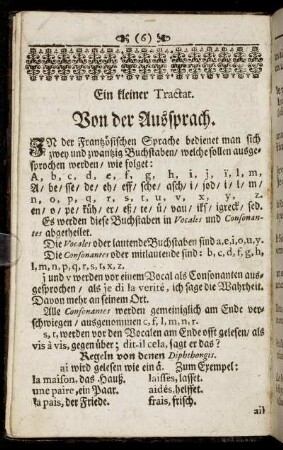 (6)
Ein kleiner Tractat.
Von der Ausſprach.
IN der Frantzöſiſchen Sprache bedienet man ſich
zwey und zwantzig Buchſtaben/ welche ſollen ausge-
ſprochen werden/ wie folget:
A, b, c, d, e, f, g, h, i, j, ï, l, m,
A/ be/ ſſe/ de/ eh/ eff/ ſche/ aſch/ i/ jod/ i/ l/ m/
n, o, p, q, r, s, t, u, v, x, y, z.
en/ o/ pe/ küh/ er/ eß/ te/ ü/ vau/ iks/ igrec/ ſed.
Es werden dieſe Buchſtaben in Vocales und Conſonan-
tes abgetheilet.
Die Vocales oder lautende Buchſtaben ſind a, e, i, o, u, y.
Die Conſonantes oder mitlautende ſind: b, c, d, f, g, h,
l, m, n, p, q, r, s, t, x, z,
j und v werden vor einem Vocal als Conſonanten aus-
geſprochen/ als je di la verité, ich ſage die Wahrheit.
Davon mehr an ſeinem Ort.
Alle Conſonantes werden gemeiniglich am Ende ver-
ſchwiegen/ ausgenommen c, f, l, m, n, r.
s, t, werden vor den Vocalen am Ende offt geleſen/ als
vis à vis, gegen über; dit-il cela, ſagt er das?
Regeln von denen Diphthongis.
ai wird geleſen wie ein ä. Zum Exempel:
la maiſon, das Hauß. laiſſés, laſſet.
une paire, ein Paar. aidés, helffet.
la paix, der Friede. frais, friſch.
ail